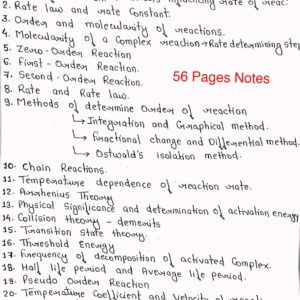 influencing rate of reac:
2. Rate law and rate Constant.
3. Order and molecularity of reactions.
4. Molecularity of a Complex reaction → Rate determining step
5. Zero-Order Reaction
6. First-Order Reaction.
7. Second-Order Reaction.
56 Pages Notes
8. Rate and Rate law.
9. Methods of determine Order of reaction
↳ Integration and Graphical method.
↳ fractional change and Differential method.
↳ Ostwald's isolation method.
10. Chain Reactions.
11. Temperature dependence of reaction rate.
12. Arrhenius Theory
13. Physical Significance and determination of activation energy
14. Collision theory - demerits
15. Transition State theory.
16. Threshold Energy
17. Frequency of decomposition of activated Complex.
18. Half life period and Average life period.
19. Pseudo Order Reaction
20. Temperature Coefficient and Velocity of